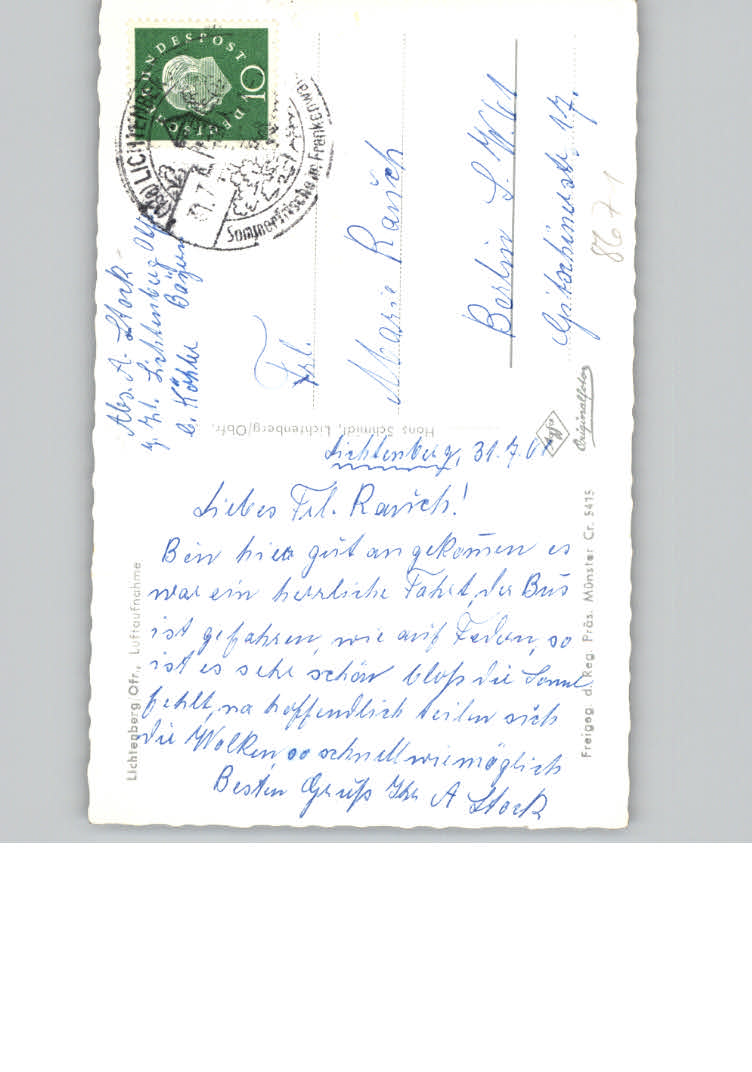 DEUTSCHE BUNDESPOST
10
LICHTENBERG
31.7.
Sommerfrische im Frankenwald
Abs. A. Stock
z. Zt. Lichtenberg Ofr
b. Köhler Bayern
Frl.
Marie Rausch
Berlin S.W. 61
Gitschinerstr. 17.
8671
Hans Schmidt, Lichtenberg/Obfr.
Agfa
Originalfoto
Lichtenberg, 31.7.61
Liebes Frl. Rausch!
Bin hier gut angekommen es
war ein herrliche Fahrt, der Bus
ist gefahren, wie auf Federn, so
ist es sehr schön bloß die Sonne
fehlt, na hoffendlich teilen sich
die Wolken, so schnell wie möglich
Besten Gruß Ihr A Stock
Lichtenberg/Ofr., Luftaufnahme
Freigeg. d. Reg. Präs. Münster Cr. 5415